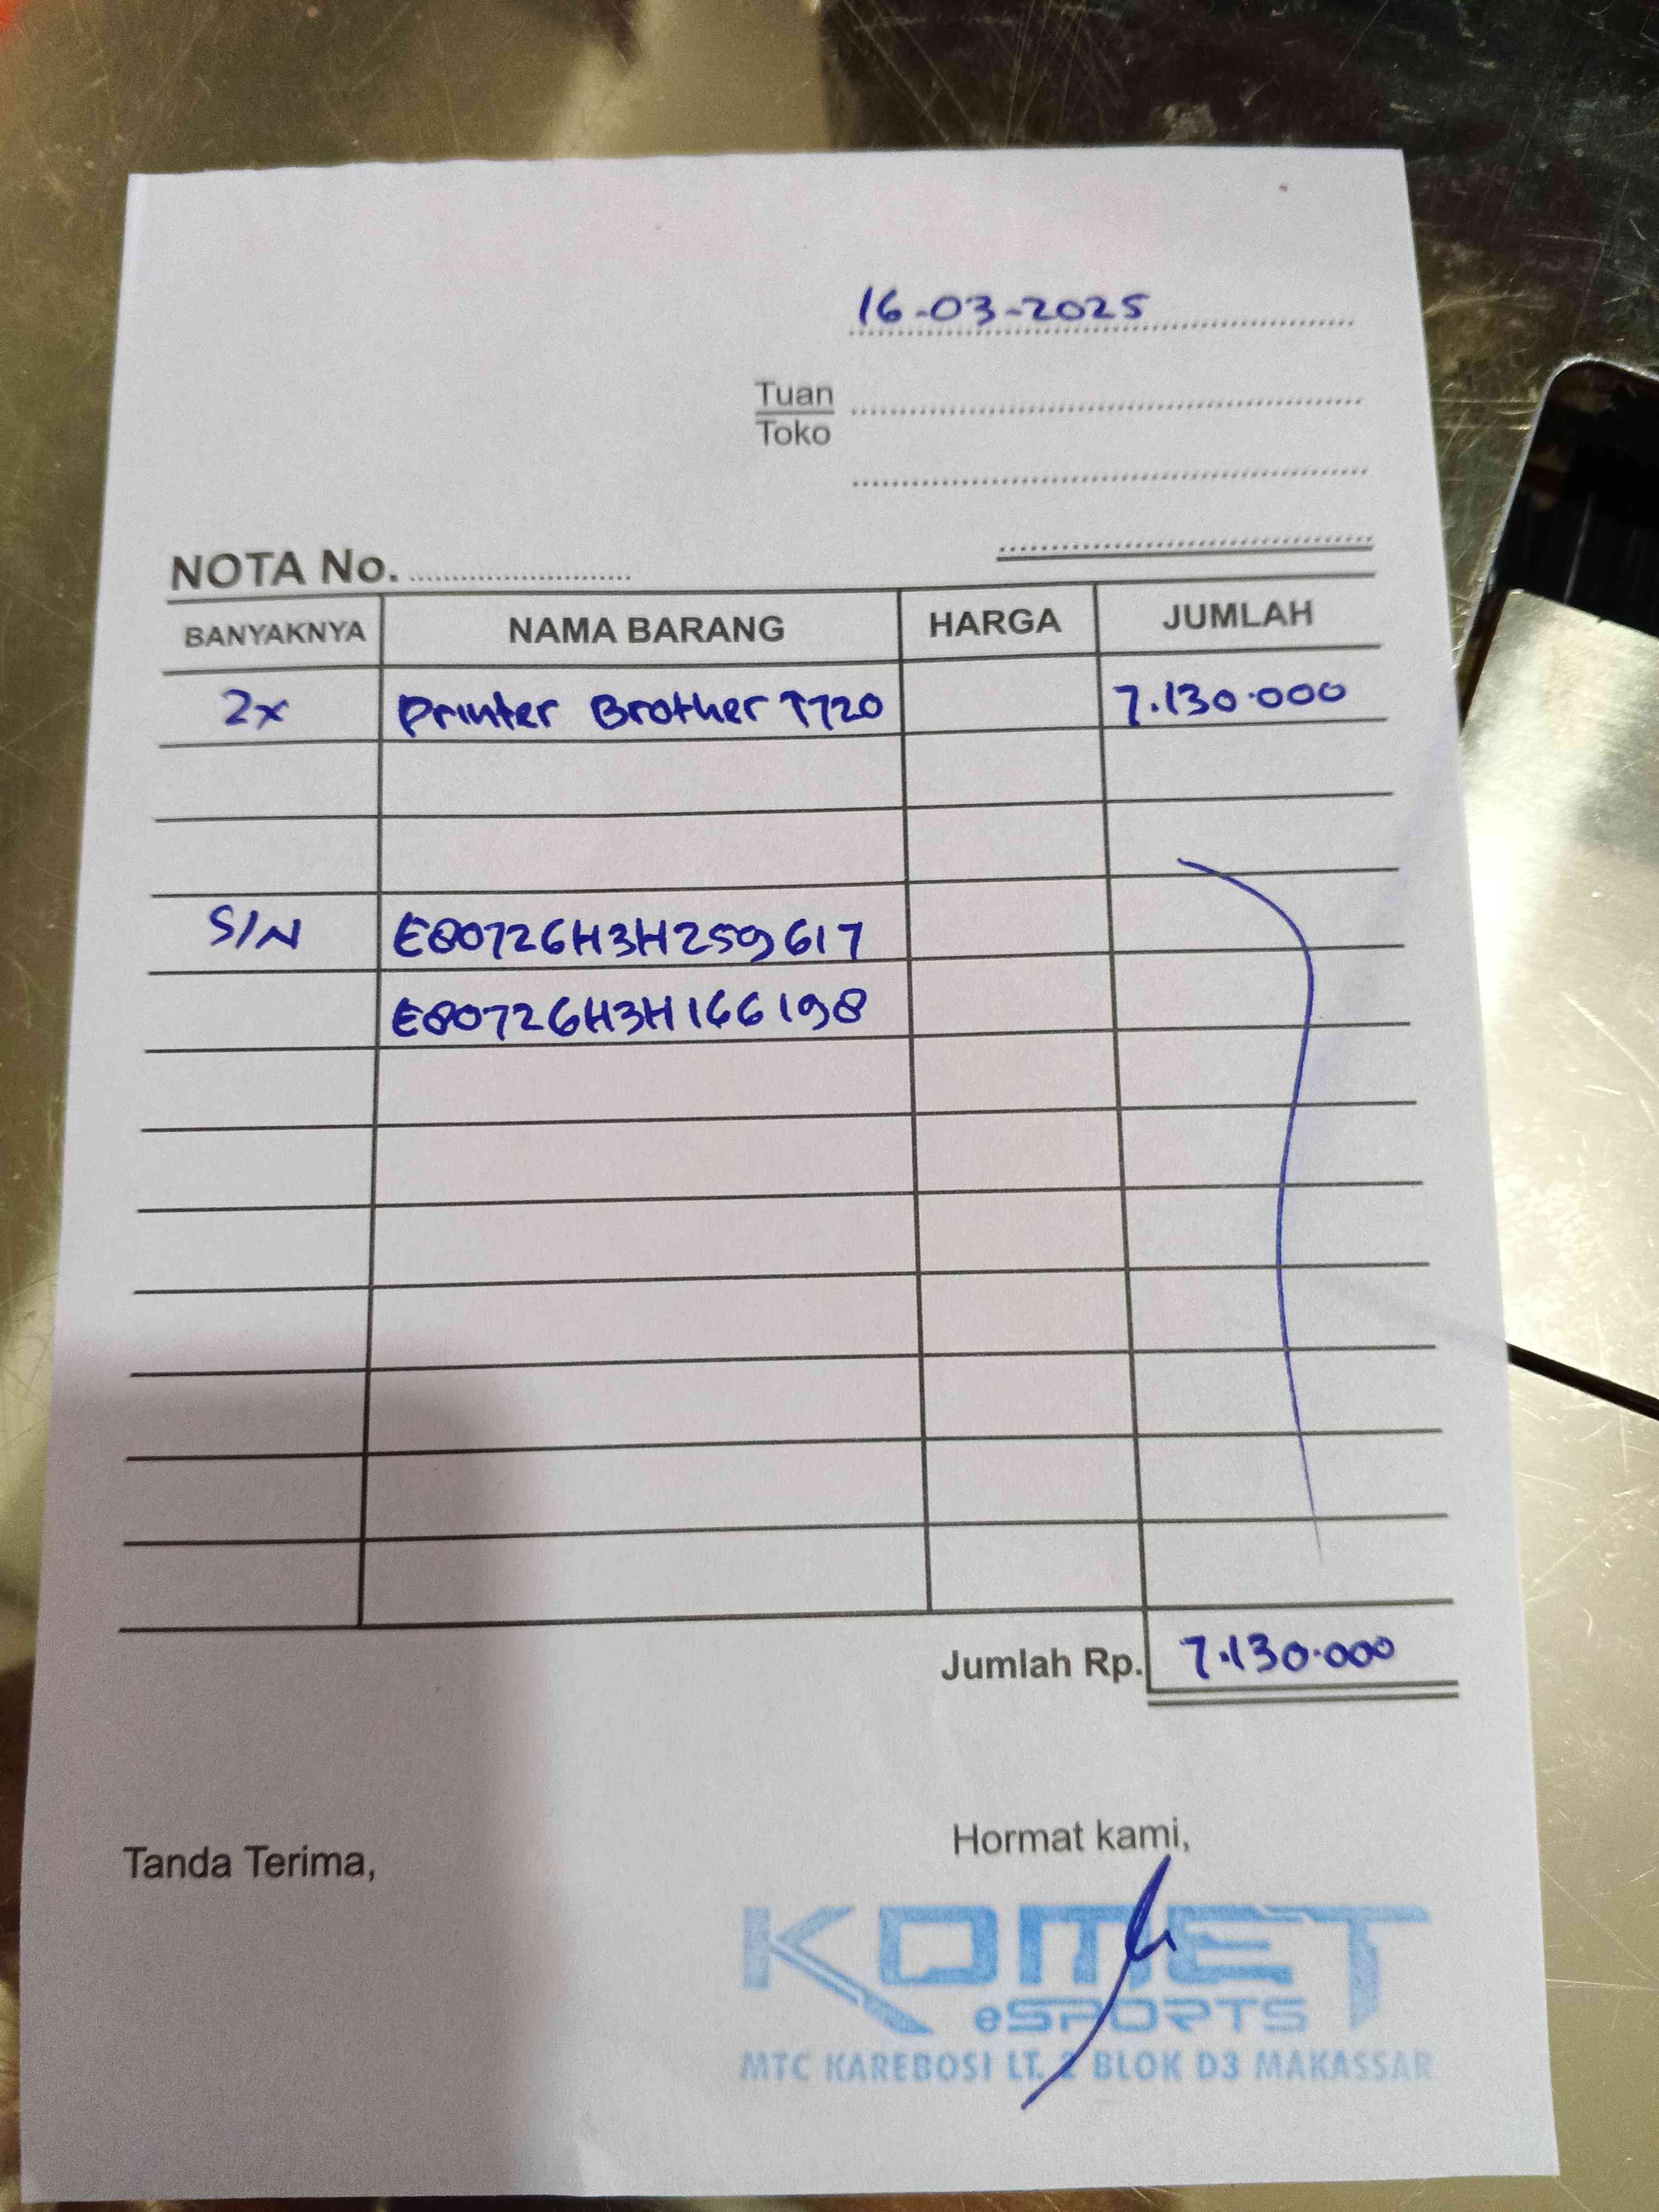 16-03-2025
Tuan
Toko
NOTA No.
BANYAKNYA NAMA BARANG HARGA JUMLAH
2x Printer Brother T720 7.130.000
S/N E80726H3H259617
E80726H3H166198
Jumlah Rp. 7.130.000
Tanda Terima, Hormat kami,
KOMET
eSPORTS
MTC KAREBOSI LT. 2 BLOK D3 MAKASSAR